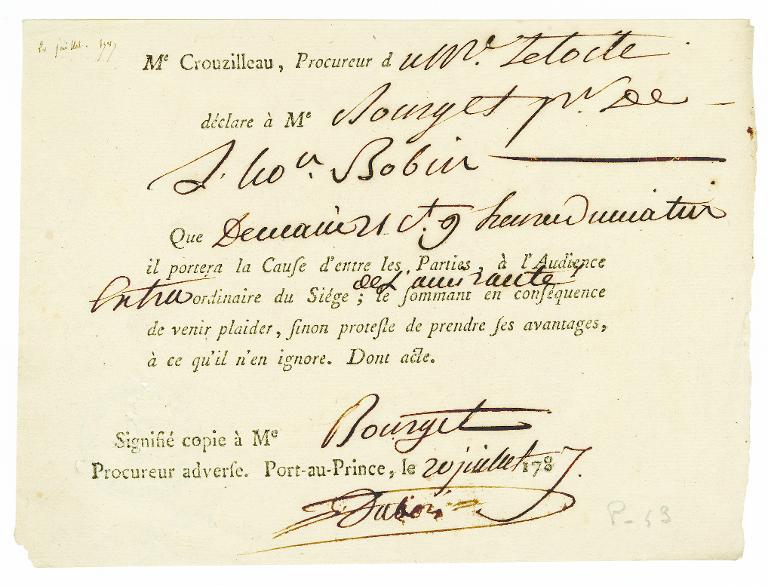 20 juillet. 1787
Me Crouzilleau, Procureur d u Mr. Lelocle
déclare à Me Bourget pr. De
Bobin
Que Demain 21 ct. 9 heures du matin
il portera la Cauſe d'entre les Parties, à l'Audience
Extra ordinaire du Siége de L'amirauté ; le ſommant en conſéquence
de venir plaider, ſinon proteſte de prendre ſes avantages,
à ce qu'il n'en ignore. Dont acte.
Signifié copie à Me Bourget
Procureur adverſe. Port-au-Prince, le 20 juillet 1787.
Dubois
P-53